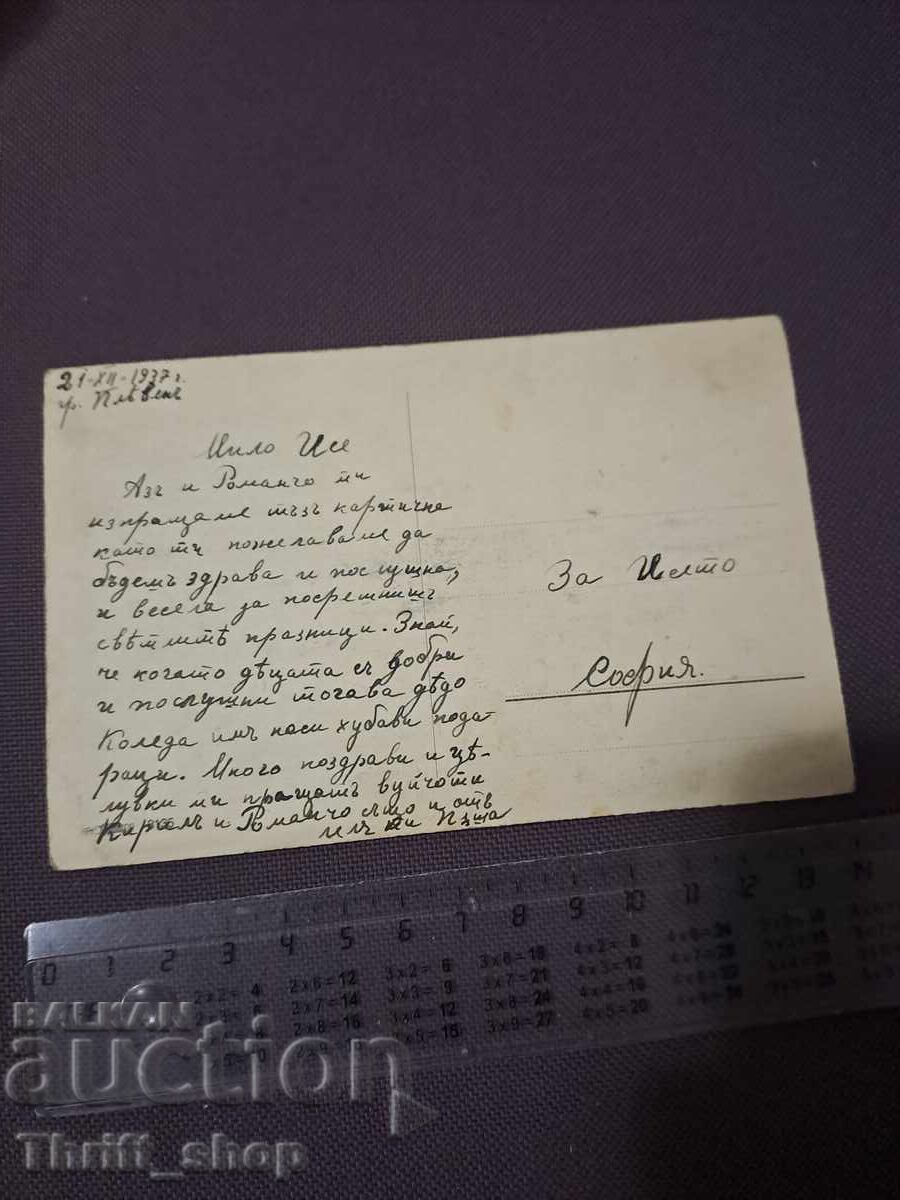 21-XII-1937 г.
гр. Плѣвенъ
Мило Исе
Азъ и Романчо ти
изпращаме тъзъ картичка
като ти пожелаваме да
бъдемъ здрава и послушна,
и весела за посрещнишъ
свѣтлитѣ празници. Знай,
че когато дѣцата съ добри
и послушни тогава дѣдо
Коледа имъ носи хубави пода-
раци. Много поздрави и цѣ-
лувки ти пращатъ вуйчоти
Кирилъ и Романчо също и отъ
За Исето
София.
0 1 2 3 4 5 6 7 8 9 10 11 12 13 14
2x2= 4 2x6=12 3x2= 6 3x6=18 4x2= 8
2x7=14 3x3= 9 3x7=21 4x3=12
2x8=16 3x4=12 3x8=24 4x4=16
3x5=15 3x9=27 4x5=20
BALKAN
auction
Thrift_shop